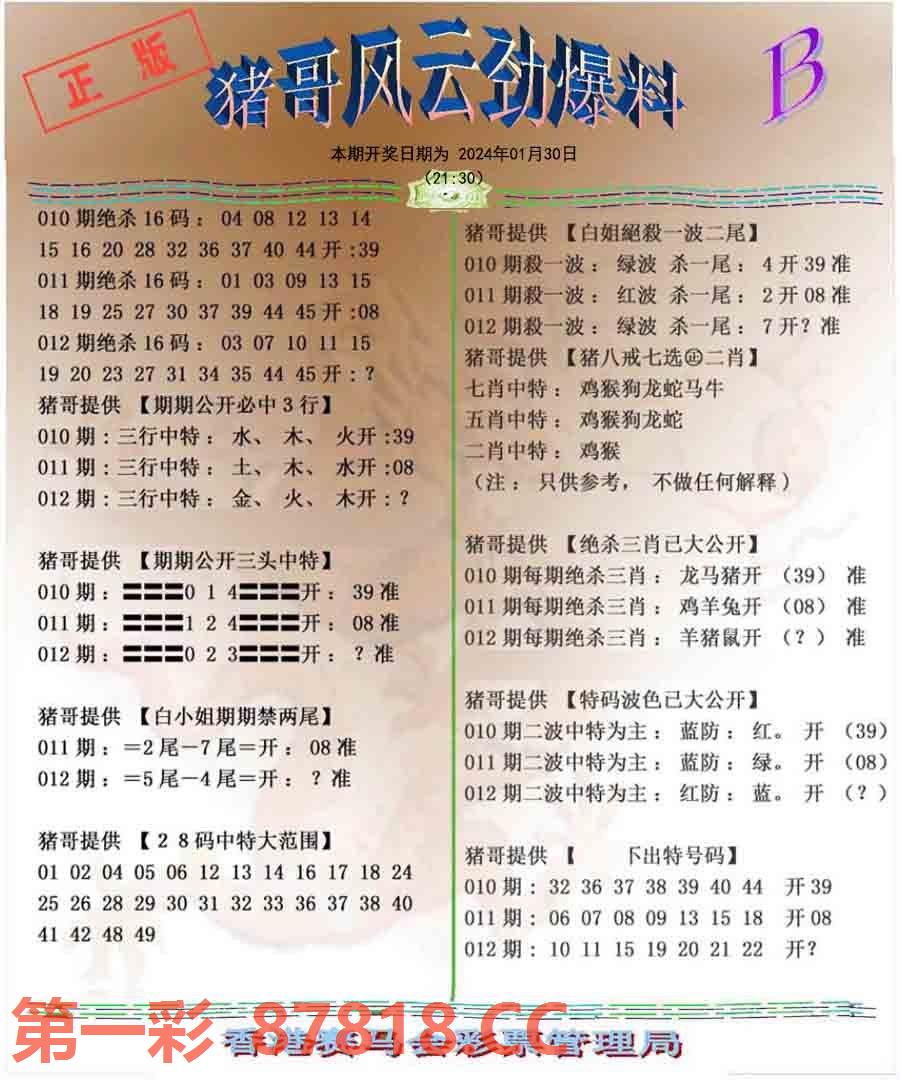 正版
猪哥风云劲爆料
B
本期开奖日期为 2024年01月30日
(21:30)
010 期绝杀 16 码： 04 08 12 13 14
15 16 20 28 32 36 37 40 44 开 :39
011 期绝杀 16 码： 01 03 09 13 15
18 19 25 27 30 37 39 44 45 开 :08
012 期绝杀 16 码： 03 07 10 11 15
19 20 23 27 31 34 35 44 45 开：？
猪哥提供 【期期公开必中 3 行】
010 期：三行中特： 水、 木、 火开 :39
011 期：三行中特： 土、 木、 水开 :08
012 期：三行中特： 金、 火、 木开：？
猪哥提供 【期期公开三头中特】
010 期：〓〓〓0 1 4〓〓〓开： 39 准
011 期：〓〓〓1 2 4〓〓〓开： 08 准
012 期：〓〓〓0 2 3〓〓〓开：？准
猪哥提供 【白小姐期期禁两尾】
011 期：＝2 尾－7 尾＝开： 08 准
012 期：＝5 尾－4 尾＝开：？准
猪哥提供 【２８码中特大范围】
01 02 04 05 06 12 13 14 16 17 18 24
25 26 28 29 30 31 32 33 36 37 38 40
41 42 48 49
猪哥提供 【白姐絕殺一波二尾】
010 期殺一波： 绿波 杀一尾： 4 开 39 准
011 期殺一波： 红波 杀一尾： 2 开 08 准
012 期殺一波： 绿波 杀一尾： 7 开？准
猪哥提供 【猪八戒七选㊣二肖】
七肖中特： 鸡猴狗龙蛇马牛
五肖中特： 鸡猴狗龙蛇
二肖中特： 鸡猴
（注： 只供参考， 不做任何解释）
猪哥提供 【绝杀三肖已大公开】
010 期每期绝杀三肖： 龙马猪开 （39） 准
011 期每期绝杀三肖： 鸡羊兔开 （08） 准
012 期每期绝杀三肖： 羊猪鼠开 （？） 准
猪哥提供 【特码波色已大公开】
010 期二波中特为主： 蓝防： 红。 开 （39）
011 期二波中特为主： 蓝防： 绿。 开 （08）
012 期二波中特为主： 红防： 蓝。 开 （？）
猪哥提供 【 下出特号码】
010 期： 32 36 37 38 39 40 44 开 39
011 期： 06 07 08 09 13 15 18 开 08
012 期： 10 11 15 19 20 21 22 开？
第一彩 87818.CC
香港赛马会彩票管理局